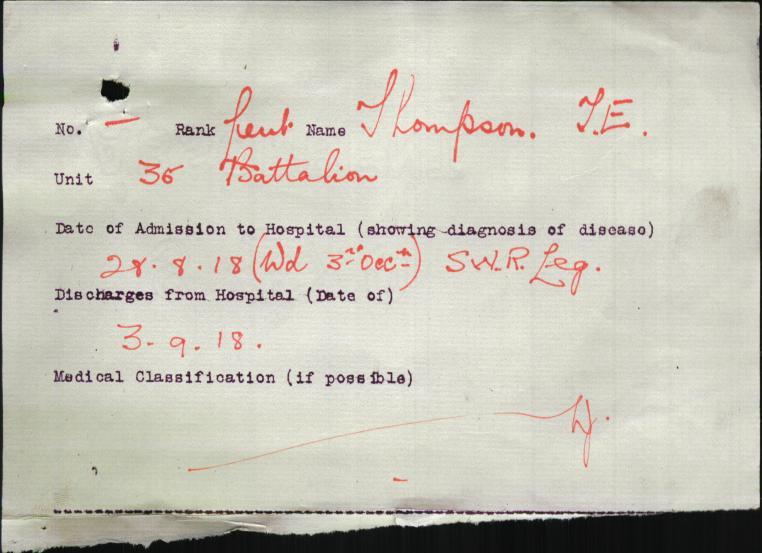 No. — Rank Lieut Name Thompson. T.E.
Unit 36 Battalion
Date of Admission to Hospital (showing diagnosis of disease)
28.8.18 (Wd 3rd Occn) S.W.R. Leg.
Discharges from Hospital (Date of)
3-9.18.
Medical Classification (if possible)